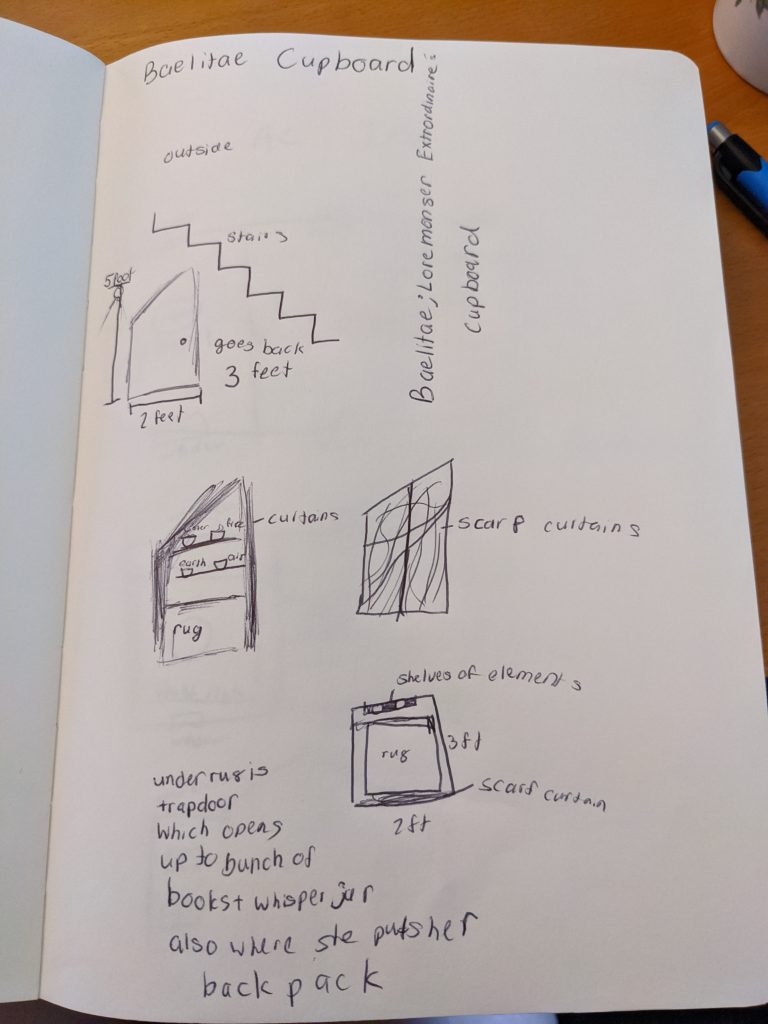 Baelitae Cupboard
outside
Baelitae; Loremonser Extrordinaire's
cupboard
stairs
5 foot
goes back
3 feet
2 feet
curtans
fire
earth air
rug
scarf curtains
shelves of elements
rug
3ft
scarf curtain
2ft
under rug is
trapdoor
which opens
up to bunch of
books+ whisper jar
also where she puts her
back pack